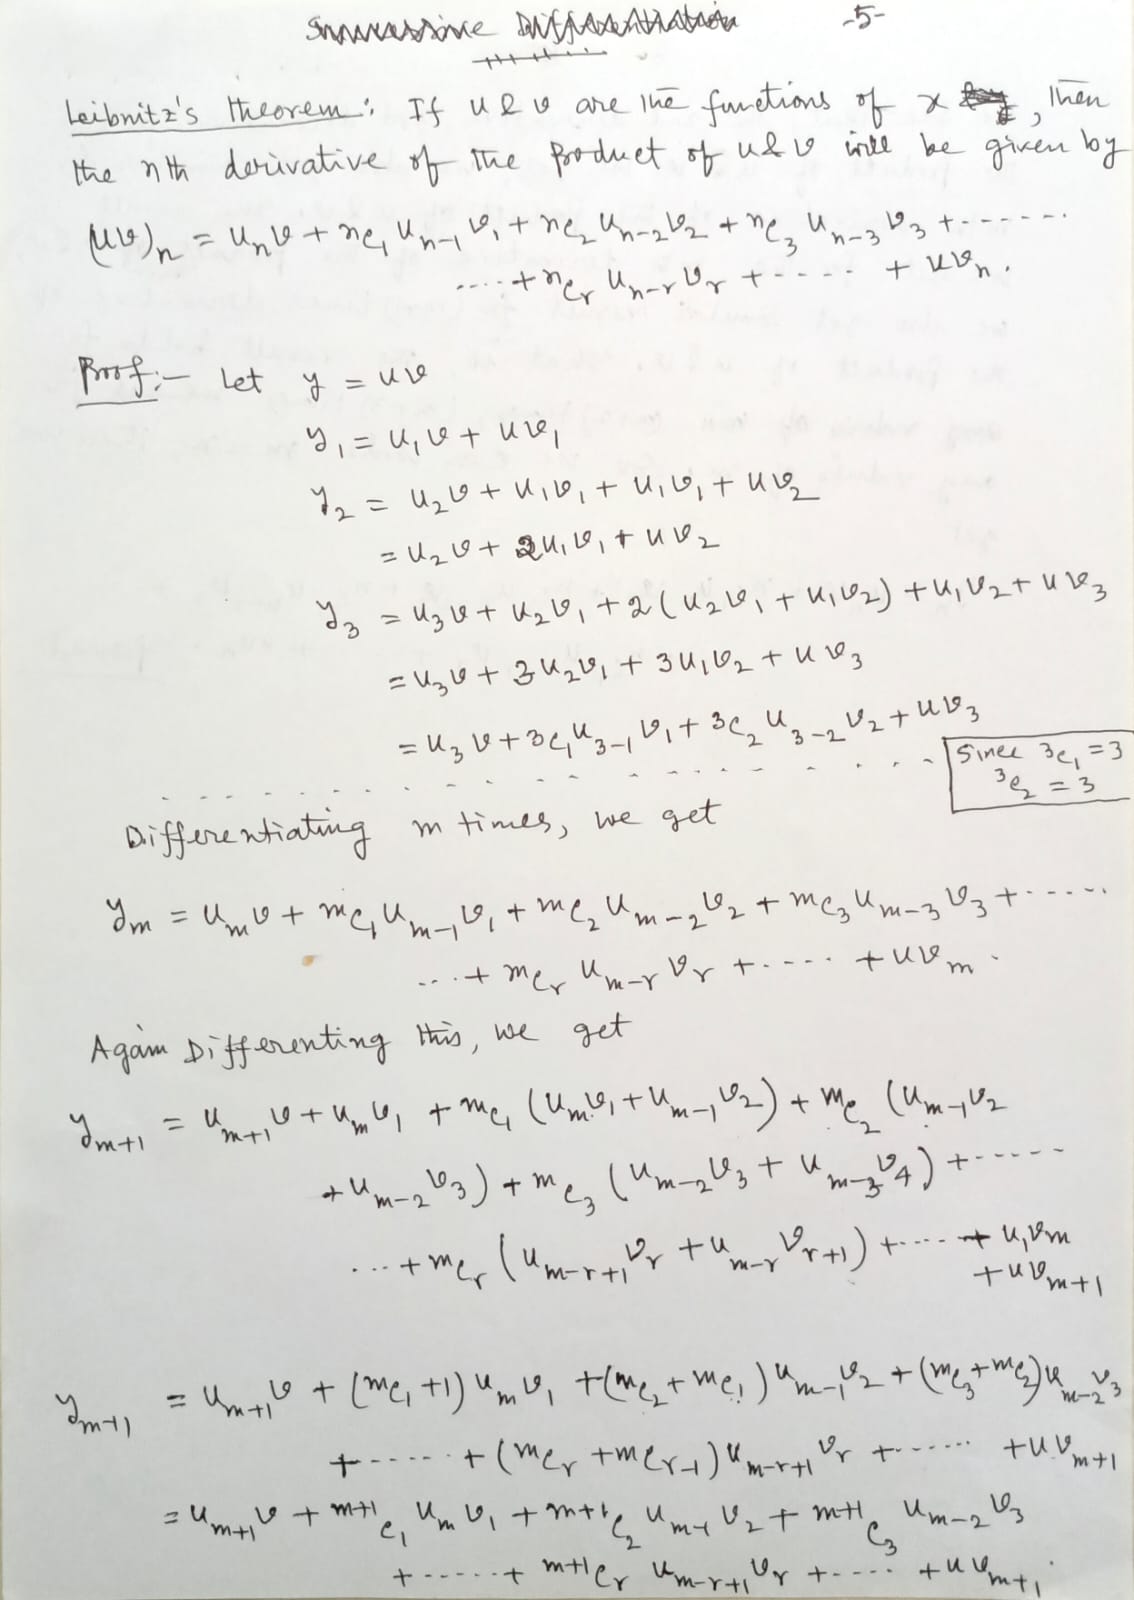 Successive Differentiation -5-
Leibnitz's theorem: If u & v are the functions of x, then
the nth derivative of the product of u & v will be given by
(uv)ₙ = uₙv + nc₁ uₙ₋₁ v₁ + nc₂ uₙ₋₂ v₂ + nc₃ uₙ₋₃ v₃ + .......
.... + ncᵣ uₙ₋ᵣ vᵣ + ..... + uvₙ.
Proof:- Let y = uv
y₁ = u₁v + uv₁
y₂ = u₂v + u₁v₁ + u₁v₁ + uv₂
= u₂v + 2u₁v₁ + uv₂
y₃ = u₃v + u₂v₁ + 2(u₂v₁ + u₁v₂) + u₁v₂ + uv₃
= u₃v + 3u₂v₁ + 3u₁v₂ + uv₃
= u₃v + 3c₁u₃₋₁v₁ + 3c₂u₃₋₂v₂ + uv₃
Since 3c₁ = 3
³c₂ = 3
Differentiating m times, we get
yₘ = uₘv + mc₁uₘ₋₁v₁ + mc₂uₘ₋₂v₂ + mc₃uₘ₋₃v₃ + ......
... + mcᵣ uₘ₋ᵣ vᵣ + ..... + uvₘ.
Again Differenting this, we get
yₘ₊₁ = uₘ₊₁v + uₘv₁ + mc₁ (uₘv₁ + uₘ₋₁v₂) + mc₂ (uₘ₋₁v₂
+ uₘ₋₂v₃) + mc₃ (uₘ₋₂v₃ + uₘ₋₃v₄) + ......
... + mcᵣ (uₘ₋ᵣ₊₁vᵣ + uₘ₋ᵣvᵣ₊₁) + ..... + u₁vₘ
+ uvₘ₊₁
yₘ₊₁ = uₘ₊₁v + (mc₁ + 1) uₘv₁ + (mc₂ + mc₁) uₘ₋₁v₂ + (mc₃ + mc₂) uₘ₋₂v₃
+ ...... + (mcᵣ + mcᵣ₋₁) uₘ₋ᵣ₊₁ vᵣ + ....... + uvₘ₊₁
= uₘ₊₁v + m+1c₁ uₘv₁ + m+1c₂ uₘ₋₁v₂ + m+1c₃ uₘ₋₂v₃
+ ...... + m+1cᵣ uₘ₋ᵣ₊₁vᵣ + ..... + uvₘ₊₁.